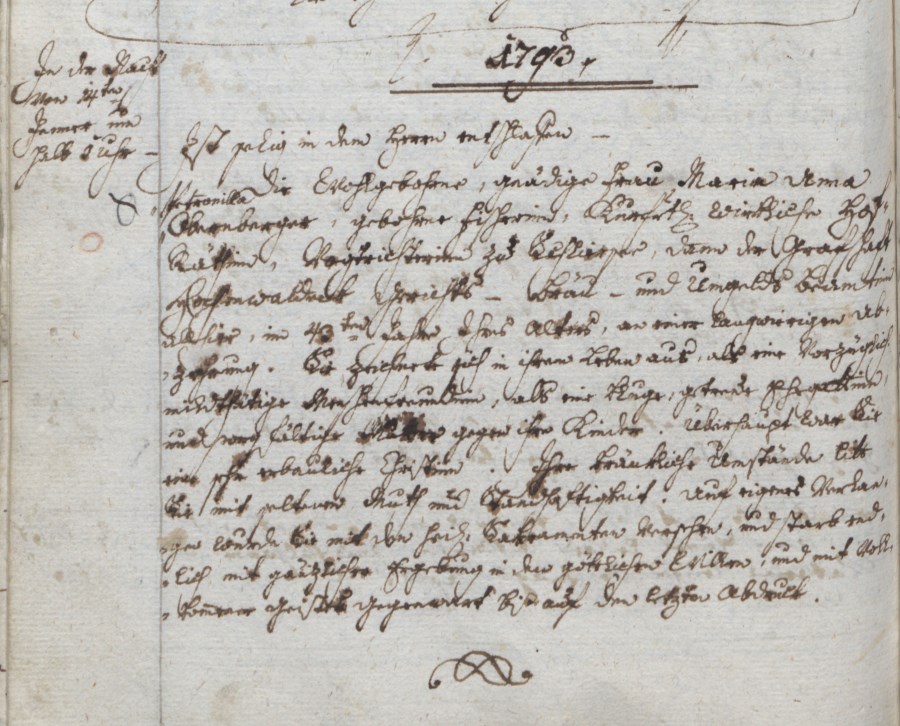 1793.
In der Nacht
vom 14ten
Jenner um
halb 1 Uhr –
Ist selig in dem Herrn entschlafen –
die Wohlgebohrne, gnädige Frau Maria Anna
Petronilla
Obernberger, gebohrne Fischerin, Kurfrtl: wirkliche Hof-
Räthin, Vogtrichterin zu Schliersee, dann der Grafschaft
Hochenwaldeck Gerichts- Bräu- und Umgelds Beamtin
allhier, im 43ten Jahre Ihres Alters, an einer langwierigen Ab-
zehrung. Sie zeichnete sich in ihrem Leben aus, als eine Vorzüglich
mildthätige Menschenfreundin, als eine kluge, getreue Ehegattin,
und sorgfältige Mutter gegen ihre Kinder. Überhaupt war Sie
eine sehr erbauliche Christin. Ihre kränkliche Umstände litt
Sie mit seltenem Muth und Standhaftigkeit. Auf eigenes Verlan-
gen wurde Sie mit den heil: Sakramenten versehen, und starb end-
lich mit gänzlicher Ergebung in den göttlichen Willen, und mit Voll-
kommner Geistes Gegenwart bis auf den letzten Abdruck.